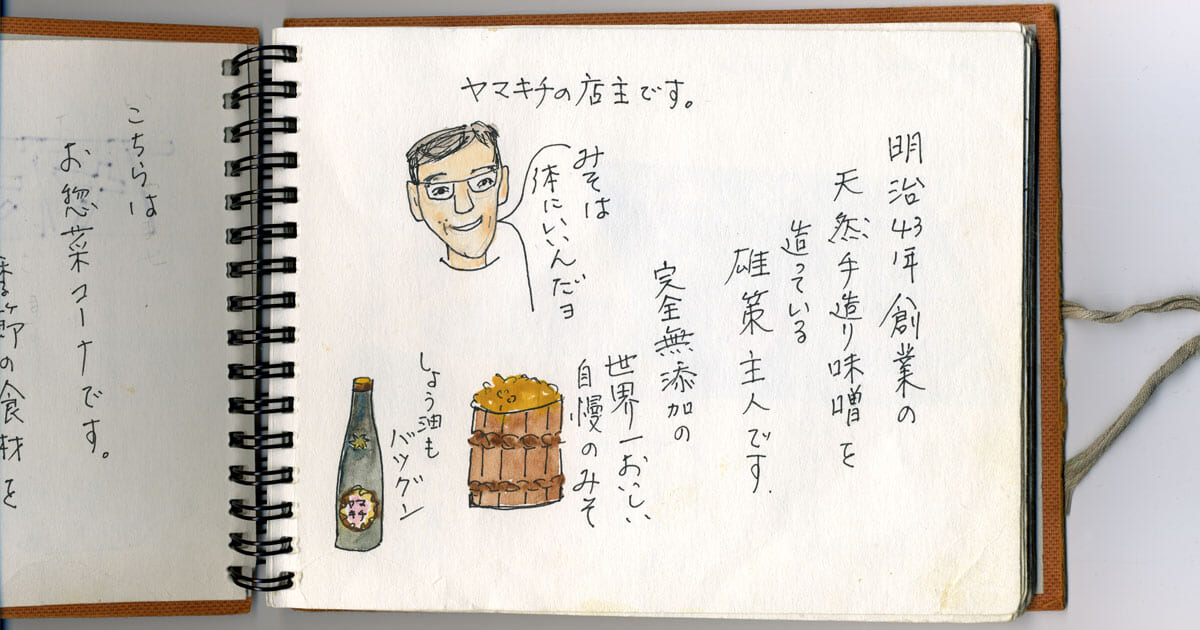 ヤマキチの店主です。
みそは
体にいいんだヨ
明治43年創業の
天然手造り味噌を
造っている
雄策主人です.
完全無添加の
世界一おいしい
自慢のみそ
しょう油も
バツグン
ヤマ
キチ
こちらは
お惣菜コーナーです。
季節の食材を